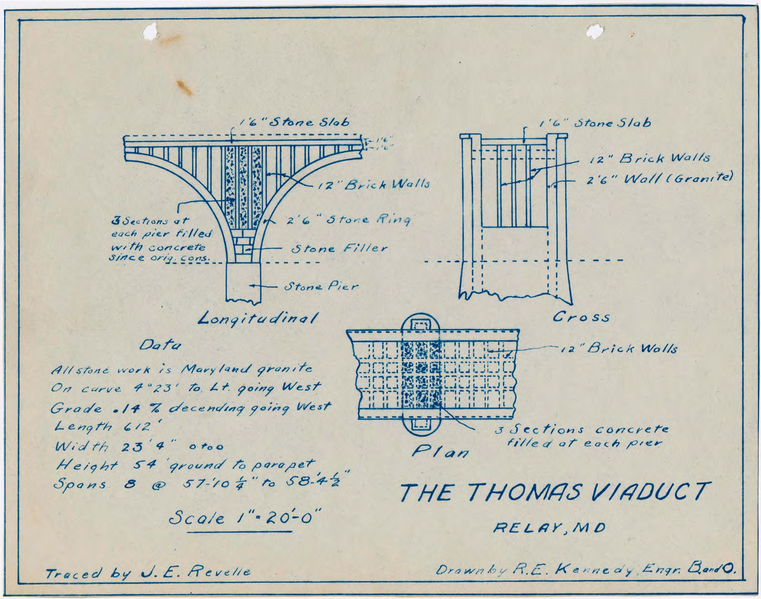 1'6" Stone Slab
12" Brick Walls
3 Sections at
each pier filled
with concrete
since orig. cons.
2'6" Stone Ring
Stone Filler
Stone Pier
Longitudinal
1'6" Stone Slab
12" Brick Walls
2'6" Wall (Granite)
Cross
12" Brick Walls
3 Sections concrete
filled at each pier
Plan
Data
All stone work is Maryland granite
On curve 4°23' to Lt. going West
Grade .14 % decending going West
Length 612'
Width 23'4" o to o
Height 54' ground to parapet
Spans 8 @ 57'-10 1/4" to 58'-4 1/2"
Scale 1" = 20'-0"
THE THOMAS VIADUCT
RELAY, MD
Traced by J. E. Revelle
Drawn by R. E. Kennedy, Engr. B. and O.